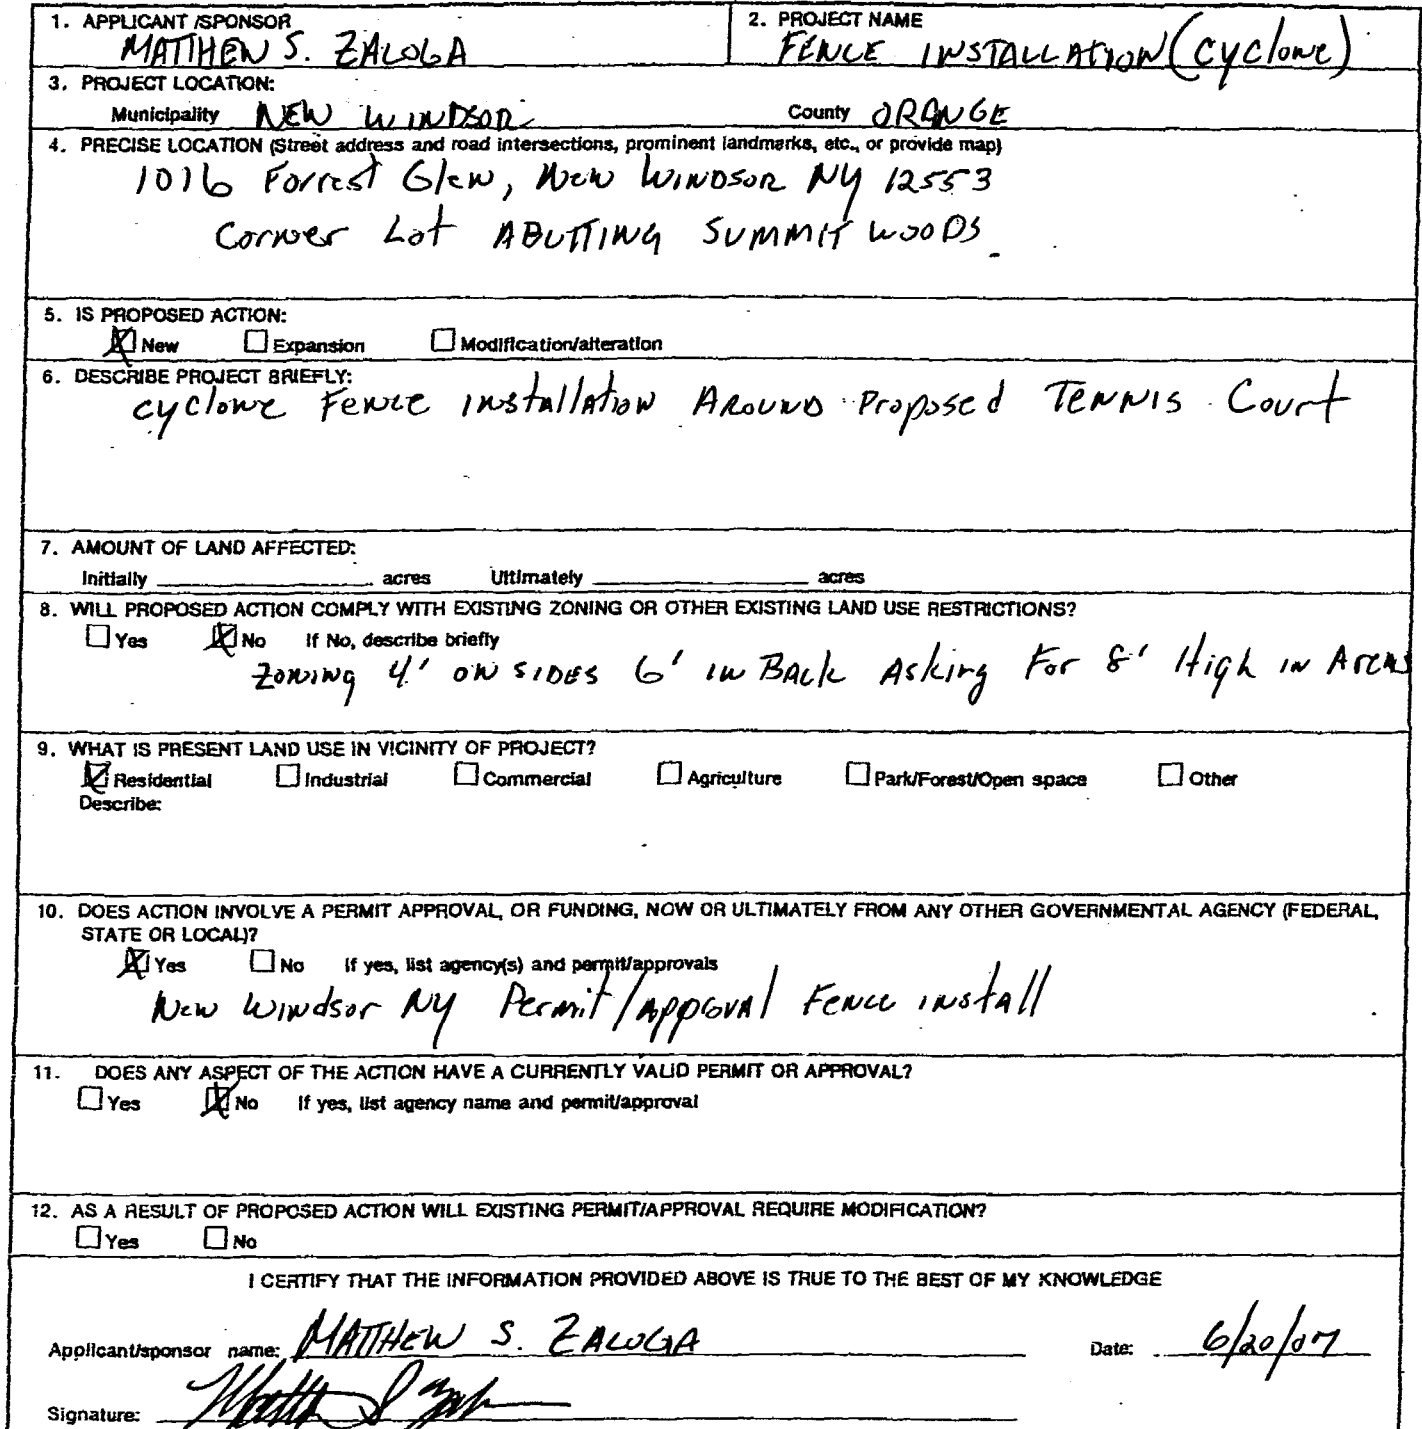 1. APPLICANT /SPONSOR
MATTHEW S. ZALOGA
2. PROJECT NAME
FENCE INSTALLATION (cyclone)
3. PROJECT LOCATION:
Municipality NEW WINDSOR County ORANGE
4. PRECISE LOCATION (Street address and road intersections, prominent landmarks, etc., or provide map)
1016 Forrest Glen, New WINDSOR NY 12553
Corner Lot ABUTTING SUMMIT WOODS
5. IS PROPOSED ACTION:
New Expansion Modification/alteration
6. DESCRIBE PROJECT BRIEFLY:
cyclone Fence installation Around Proposed TENNIS Court
7. AMOUNT OF LAND AFFECTED:
Initially acres Ultimately acres
8. WILL PROPOSED ACTION COMPLY WITH EXISTING ZONING OR OTHER EXISTING LAND USE RESTRICTIONS?
Yes No If No, describe briefly
Zoning 4' ON SIDES 6' in BACK Asking For 8' High in Areas
9. WHAT IS PRESENT LAND USE IN VICINITY OF PROJECT?
Residential Industrial Commercial Agriculture Park/Forest/Open space Other
Describe:
10. DOES ACTION INVOLVE A PERMIT APPROVAL, OR FUNDING, NOW OR ULTIMATELY FROM ANY OTHER GOVERNMENTAL AGENCY (FEDERAL,
STATE OR LOCAL)?
Yes No If yes, list agency(s) and permit/approvals
New Windsor NY Permit/Approval Fence install
11. DOES ANY ASPECT OF THE ACTION HAVE A CURRENTLY VALID PERMIT OR APPROVAL?
Yes No If yes, list agency name and permit/approval
12. AS A RESULT OF PROPOSED ACTION WILL EXISTING PERMIT/APPROVAL REQUIRE MODIFICATION?
Yes No
I CERTIFY THAT THE INFORMATION PROVIDED ABOVE IS TRUE TO THE BEST OF MY KNOWLEDGE
Applicant/sponsor name: MATTHEW S. ZALOGA Date: 6/20/07
Signature: